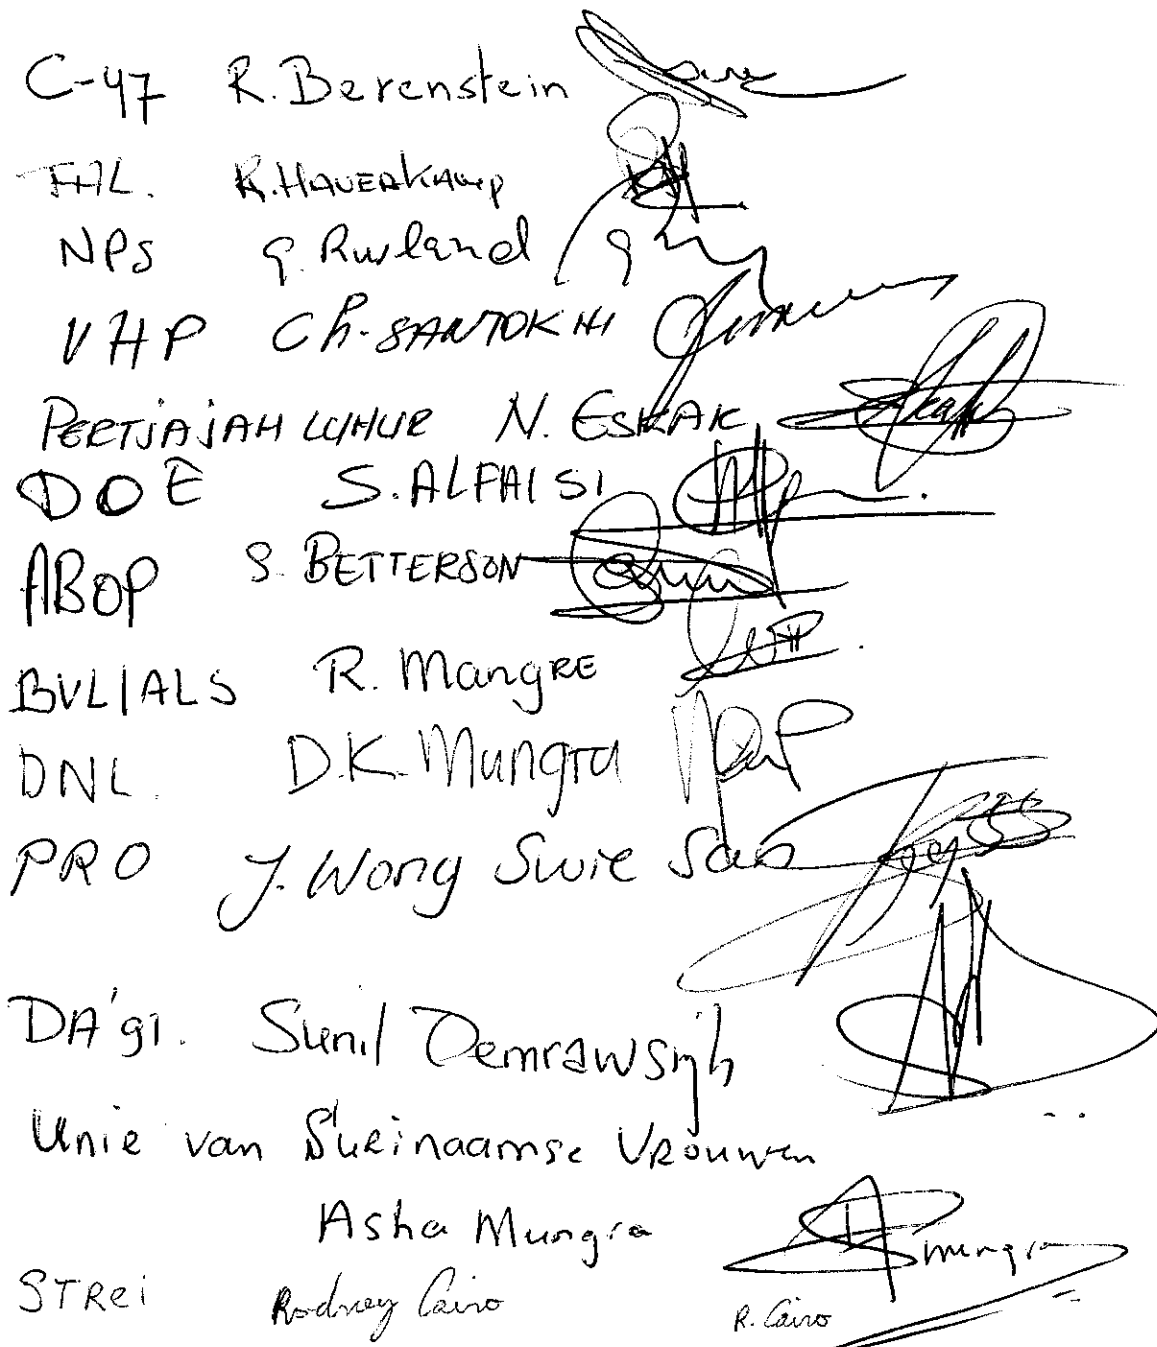 C-47 R. Berenstein
FAL. R. HAVERKAMP
NPS G. Rusland
VHP Ch. SANTOKHI
PERTJAJAH LUHUR N. ESKAK
DOE S. ALFAISI
ABOP S. BETTERSON
BVL/ALS R. MangRE
DNL. D.K. Mungra
PRO J. Wong Swie San
DA'91. Sunil Oemrawsingh
Unie van SuRinaamse VRouwen
Asha Mungra mungra
STRei Rodney Cairo R. Cairo